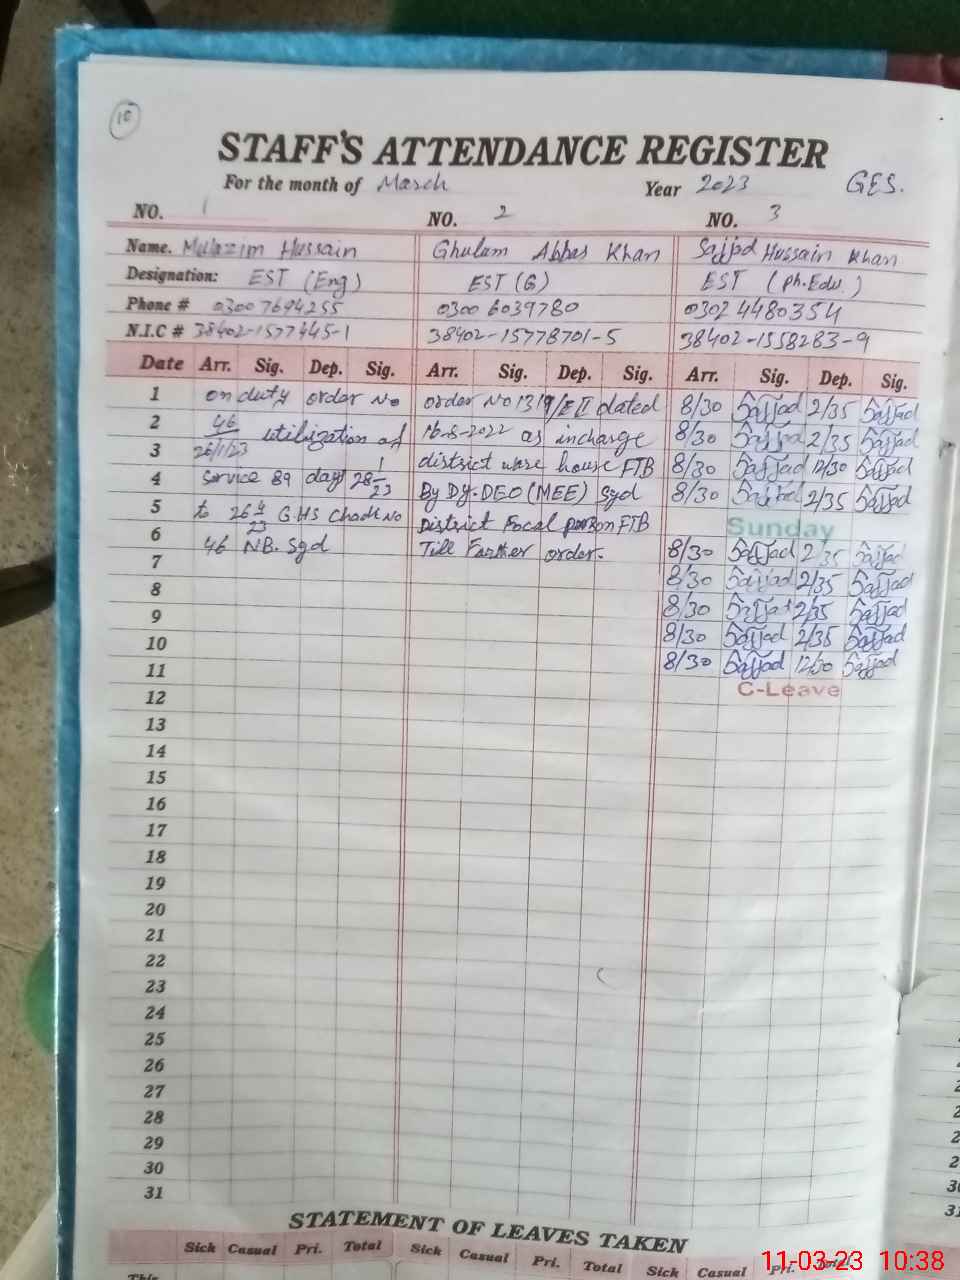 10
STAFF'S ATTENDANCE REGISTER
For the month of March Year 2023 GES.
NO. 1 NO. 2 NO. 3
Name. Mulazim Hussain Ghulam Abbas Khan Sajjad Hussain Khan
Designation: EST (Eng) EST (G) EST (Ph.Edu.)
Phone # 0300 7694255 0300 6039780 0302 4480354
N.I.C # 38402-1577445-1 38402-15778701-5 38402-1558283-9
Date Arr. Sig. Dep. Sig. Arr. Sig. Dep. Sig. Arr. Sig. Dep. Sig.
1 on duty order No order No 1319/E II dated 8/30 Sajjad 2/35 Sajjad
2 46 utilization of 16-8-2022 as incharge 8/30 Sajjad 2/35 Sajjad
3 26/1/23 district ware house FTB 8/30 Sajjad 12/30 Sajjad
4 Service 89 days 28 1/23 By Dy. DEO (MEE) Sgd 8/30 Sajjad 2/35 Sajjad
5 to 26 4/23 G.H.S Chack No District Focal person FTB Sunday
6 46 NB. Sgd Till Farther order. 8/30 Sajjad 2/35 Sajjad
7 8/30 Sajjad 2/35 Sajjad
8 8/30 Sajjad 2/35 Sajjad
9 8/30 Sajjad 2/35 Sajjad
10 8/30 Sajjad 12/30 Sajjad
11 C-Leave
12
13
14
15
16
17
18
19
20
21
22
23
24
25
26
27
28
29
30
31
STATEMENT OF LEAVES TAKEN
Sick Casual Pri. Total Sick Casual Pri. Total Sick Casual Pri. Total
This
11-03-23 10:38